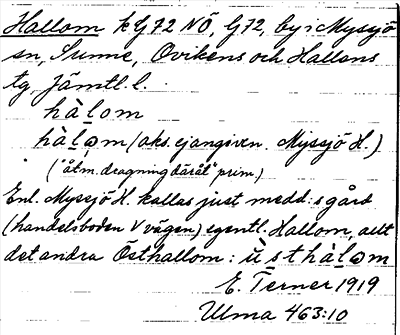 Hallom k G72 NÖ, G72, by i Myssjö
sn, Sunne, Ovikens och Hallens
tg, Jämtl. l.
hàl̠om
hàl̠ǫm (aks. ej angiven. Myssjö H.)
("åtm. dragning däråt" prim.)
Enl. Myssjö H. kallas just medd:s gård
(handelsboden V vägen) egentl. Hallom, allt
det andra Östhallom: ù̈sthàl̠ǫm
E. Terner 1919
Ulma 463:10